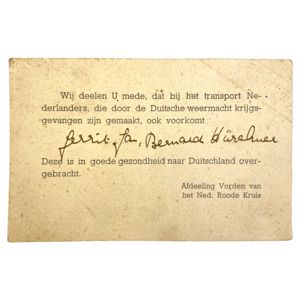 Wij deelen U mede, dat bij het transport Ne-
derlanders, die door de Duitsche weermacht krijgs-
gevangen zijn gemaakt, ook voorkomt
Gerrit Jan, Bernard
Deze is in goede gezondheid naar Duitschland over-
gebracht.
Afdeeling Vorden van
het Ned. Roode Kruis